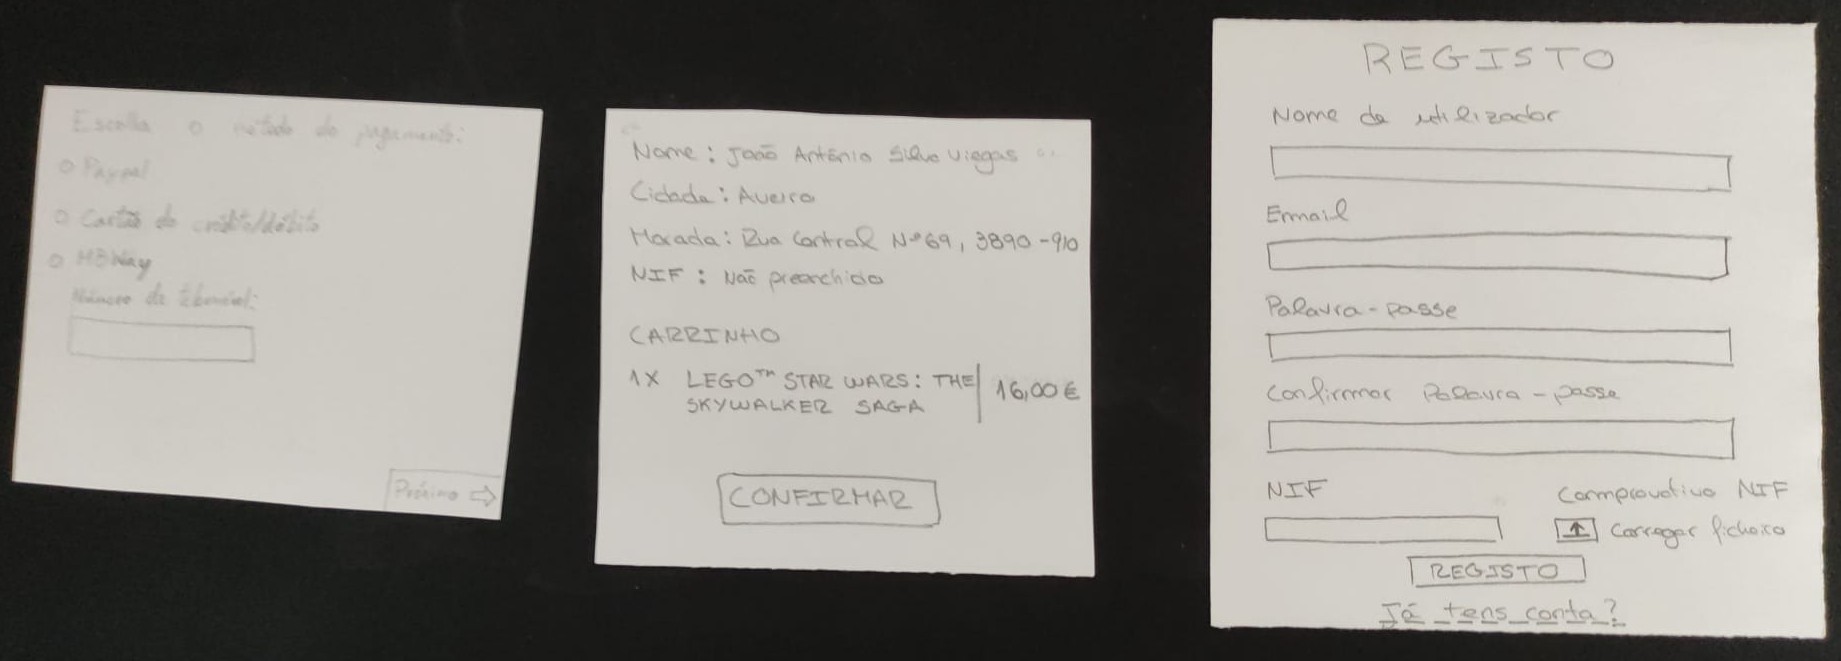 Escolha o método de pagamento:
Paypal
Cartão de crédito/débito
MBWay
Número de telemóvel:
Próximo
Nome : João António Silva Viegas
Cidade : Aveiro
Morada : Rua Central Nº69, 3890-910
NIF : Não preenchido
CARRINHO
1X LEGO™ STAR WARS: THE 16,00€
SKYWALKER SAGA
CONFIRMAR
REGISTO
Nome de utilizador
Email
Palavra-passe
Confirmar Palavra-passe
NIF Comprovativo NIF
Carregar ficheiro
REGISTO
Já tens conta?